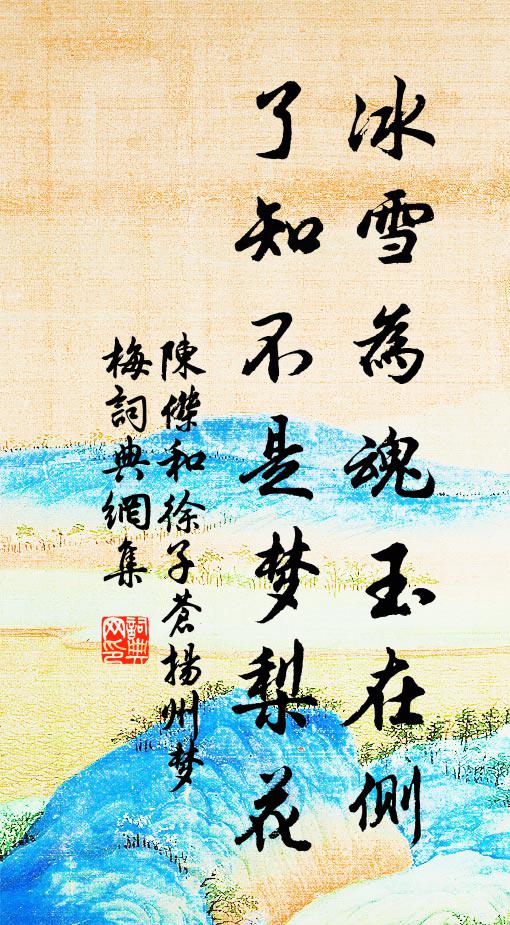 冰雪為魂玉在側
了知不是梦梨花
陳傑和徐子蒼揚州梦
梅詞典網集
詞典网印